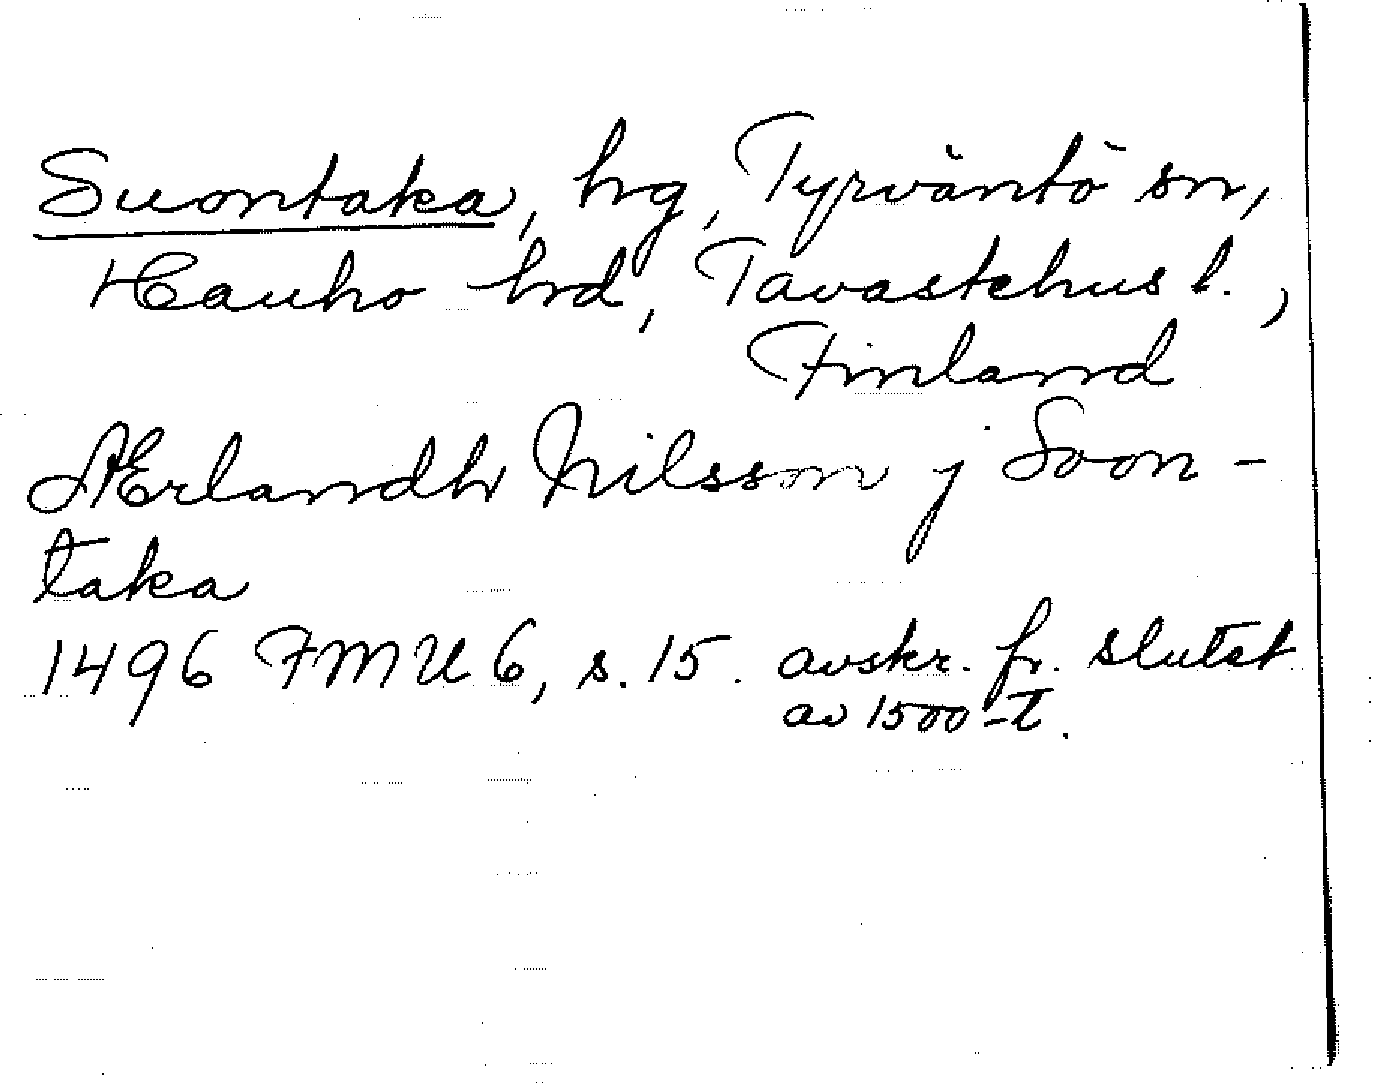 Suontaka, hrg, Tyrväntö sn,
Hauho hrd, Tavastehus l.,
Finland
Ærlandh Nilsson j Soon-
taka
1496 FMU 6, s. 15. avskr. fr. slutet
av 1500-t.